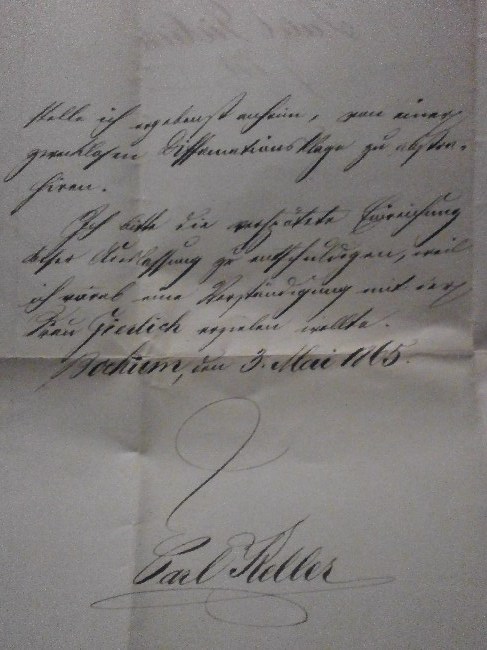 stelle ich ergebenst anheim, von einer
zwecklosen Diffamationsklage zu abstra-
hiren.
Ich bitte die verspätete Einreichung
dieser Auslassung zu entschuldigen, weil
ich vorab eine Verständigung mit der
Frau Gerlich erzielen wollte.
Bochum, den 3. Mai 1865.
Carl Keller